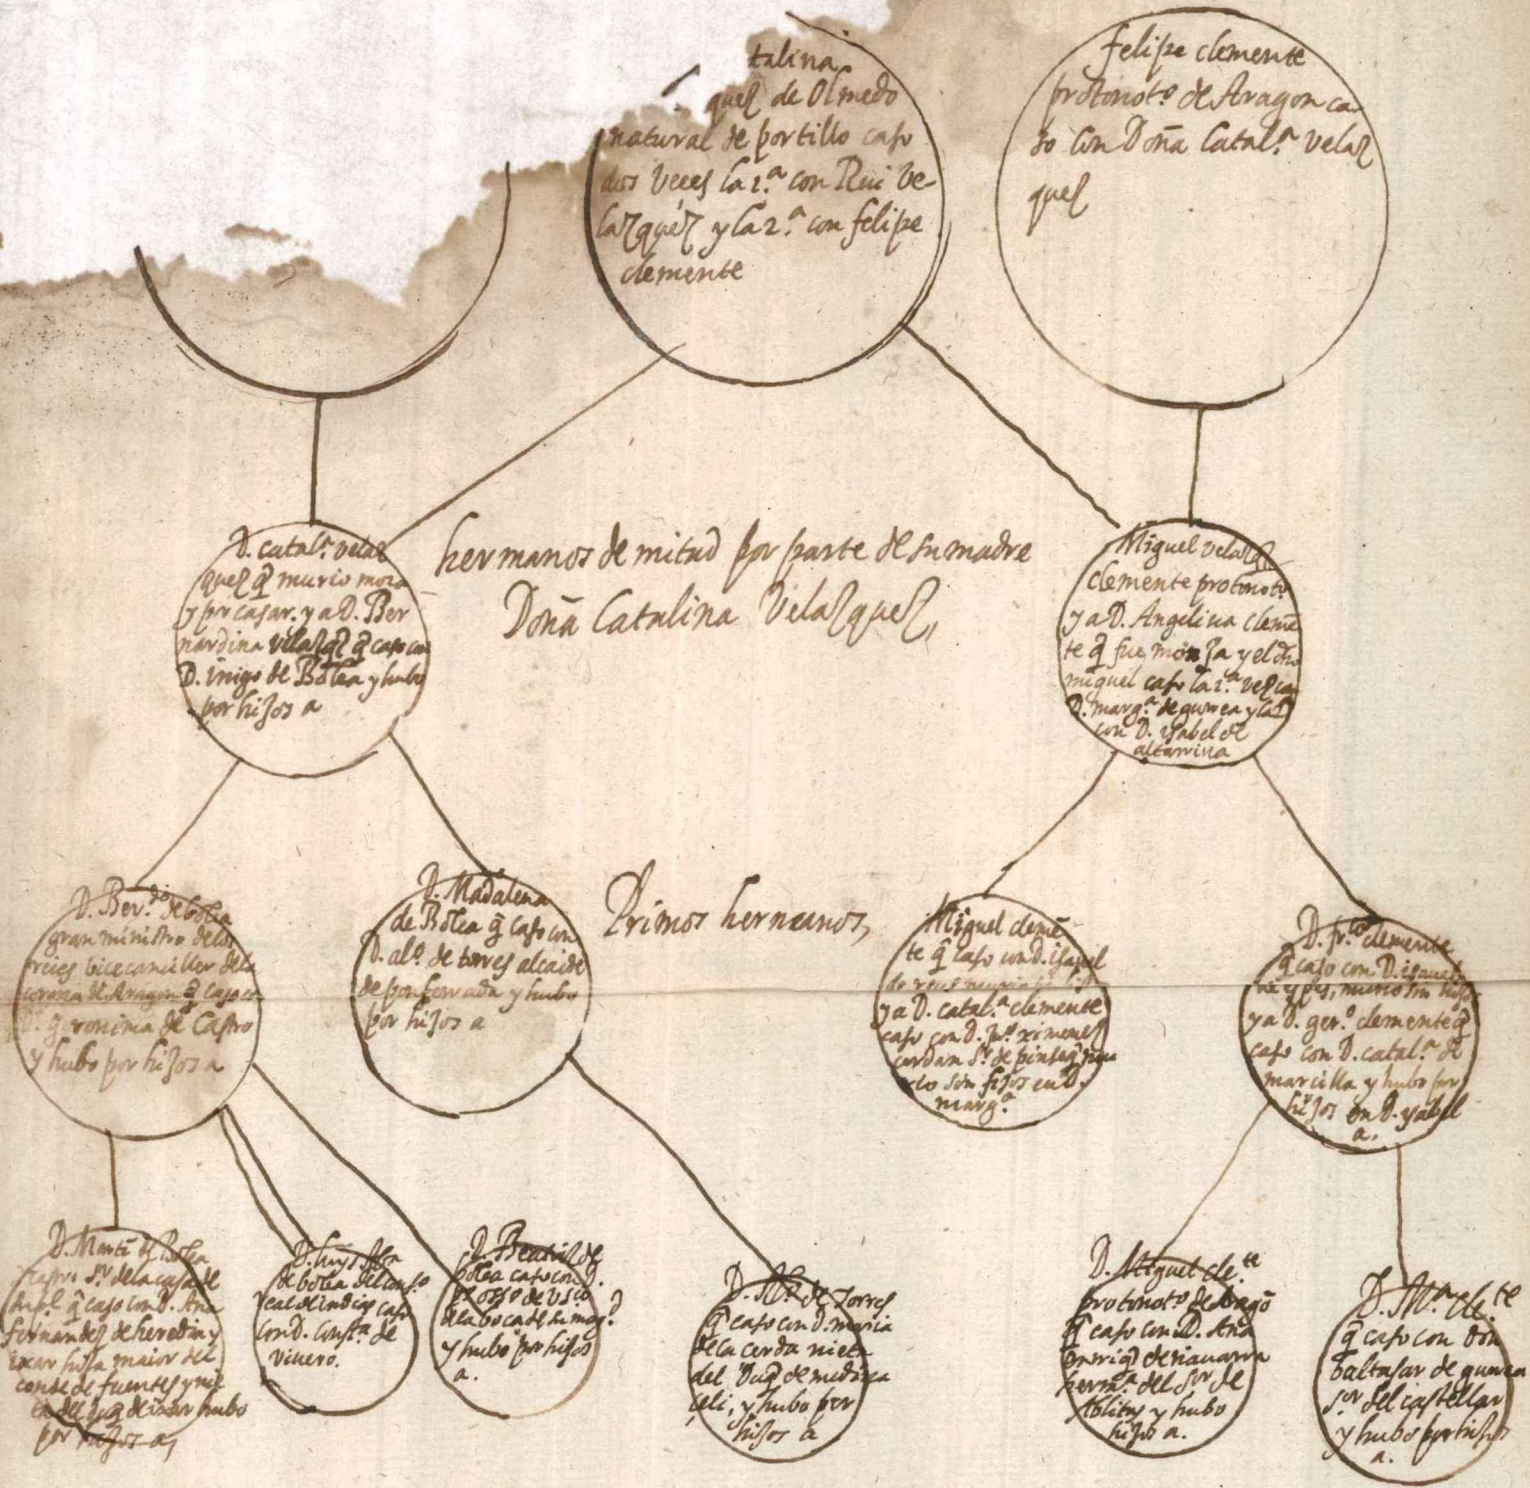 talina
quez de Olmedo
natural de portillo caso
dos veces la 1.ª con Rui Ve-
lazquez y la 2.ª con felipe
clemente
felipe clemente
protonotº de Aragon ca-
so con Doña Catal.ª velaz
quez
D. catal.ª velaz
quez q̃ murio moza
y por casar. y a D. Ber
nardina velazqz q̃ caso con
D. inigo de Bolea y hubo
por hijos a
hermanos de mitad por parte de su madre
Doña Catalina Velazquez,
Miguel velazqz
clemente protonotº
y a D. Angelina cleme
te q̃ fue monja y el dho
miguel caso la 1.ª vez con
D. marg.ª de gurrea y la 2
con D. isabel de
altarriva
D. Ber.do de bolea
gran ministro de los
reies vicecanciller de la
corona de Aragon q̃ caso co
D. geronima de Castro
y hubo por hijos a
D. Madalena
de Bolea q̃ caso con
D. alº. de torres alcaide
de ponferrada y hubo
por hijos a
Primos hermanos,
Miguel cleme
te q̃ caso con D. isabel
y a D. catal.ª clemente
caso con D. juº ximenez
cerdan s.r de pinseq
rio sin hijos en D.
marg.ª
D. fr.co clemente
q̃ caso con D. isauel
murio sin hijos
y a D. ger.º clemente q̃
caso con D. catal.ª de
marcilla y hubo por
hijos en D. ysabel
a.
D. Marti de Bolea
s.r de la casa de
q̃ caso con D. Ana
fernandez de heredia y
ixar hija maior del
conde de fuentes y nie
ta del duq̃ de ixar hubo
por hijos a,
D. luys
de bolea del consº
real de indias caso
con D. const.ª de
viuero.
D. Beatriz de
bolea caso con D.
de la boca de su mag.
y hubo por hijos
a.
D. Alº de Torres
q̃ caso con D. maria
de la cerda nieta
del Duq̃ de medina
celi, y hubo por
hijos a
D. Miguel cle.te
protonotº de Arago
q̃ caso con D. Ana
enriqz de nauarra
herm.ª del s.or de
Ablitas y hubo
hijos a.
D. M.ª cle.te
q̃ caso con don
baltasar de gurrea
s.or del castellar
y hubo por hijos
a.